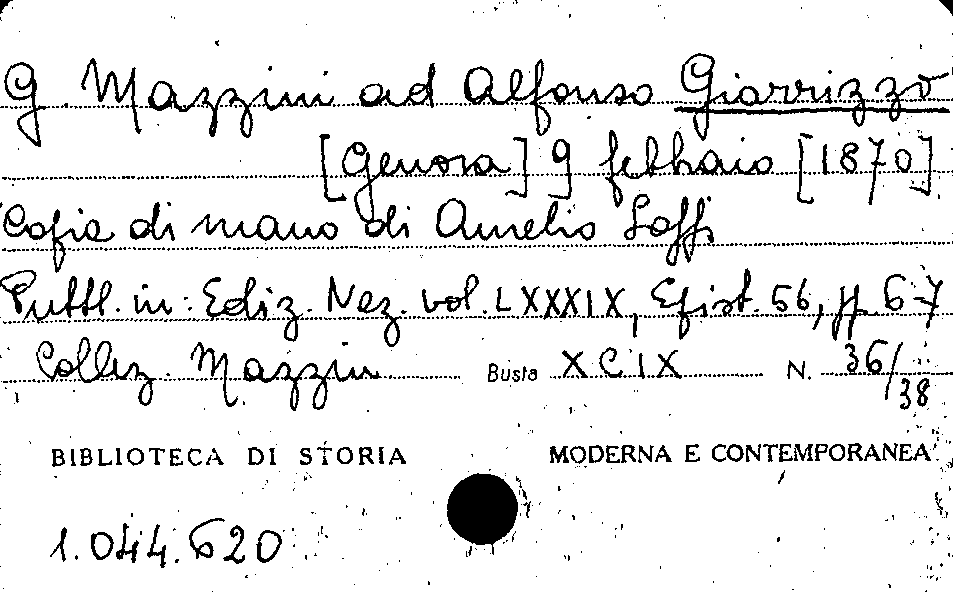 G. Mazzini ad Alfonso Giarrizzo
[Genova] 9 febbraio [1870]
Copia di mano di Aurelio Saffi
Pubbl. in: Ediz. Naz. vol. LXXXIX, Epist. 56, pp. 6-7
Collez. Mazzini Busta XCIX N. 36/38
BIBLIOTECA DI STORIA MODERNA E CONTEMPORANEA
1.044.620